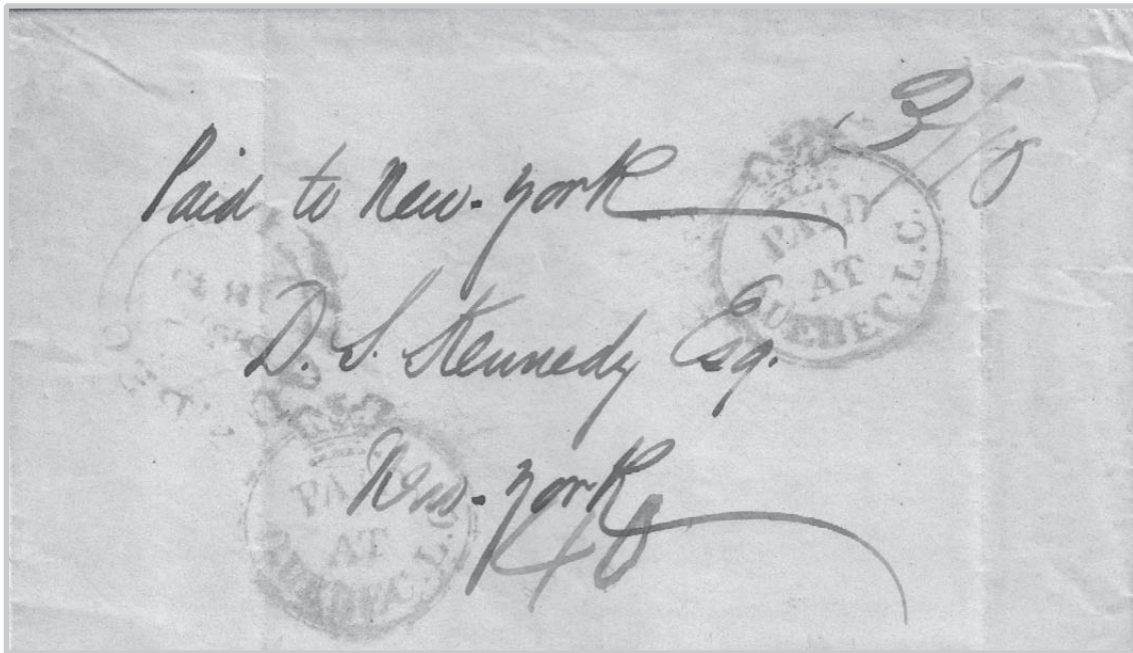 Paid to New-York
PAID
AT
QUEBEC. L.C.
D. S. Kennedy Esq.
New-York
40
PAID
AT
QUEBEC. L.C.